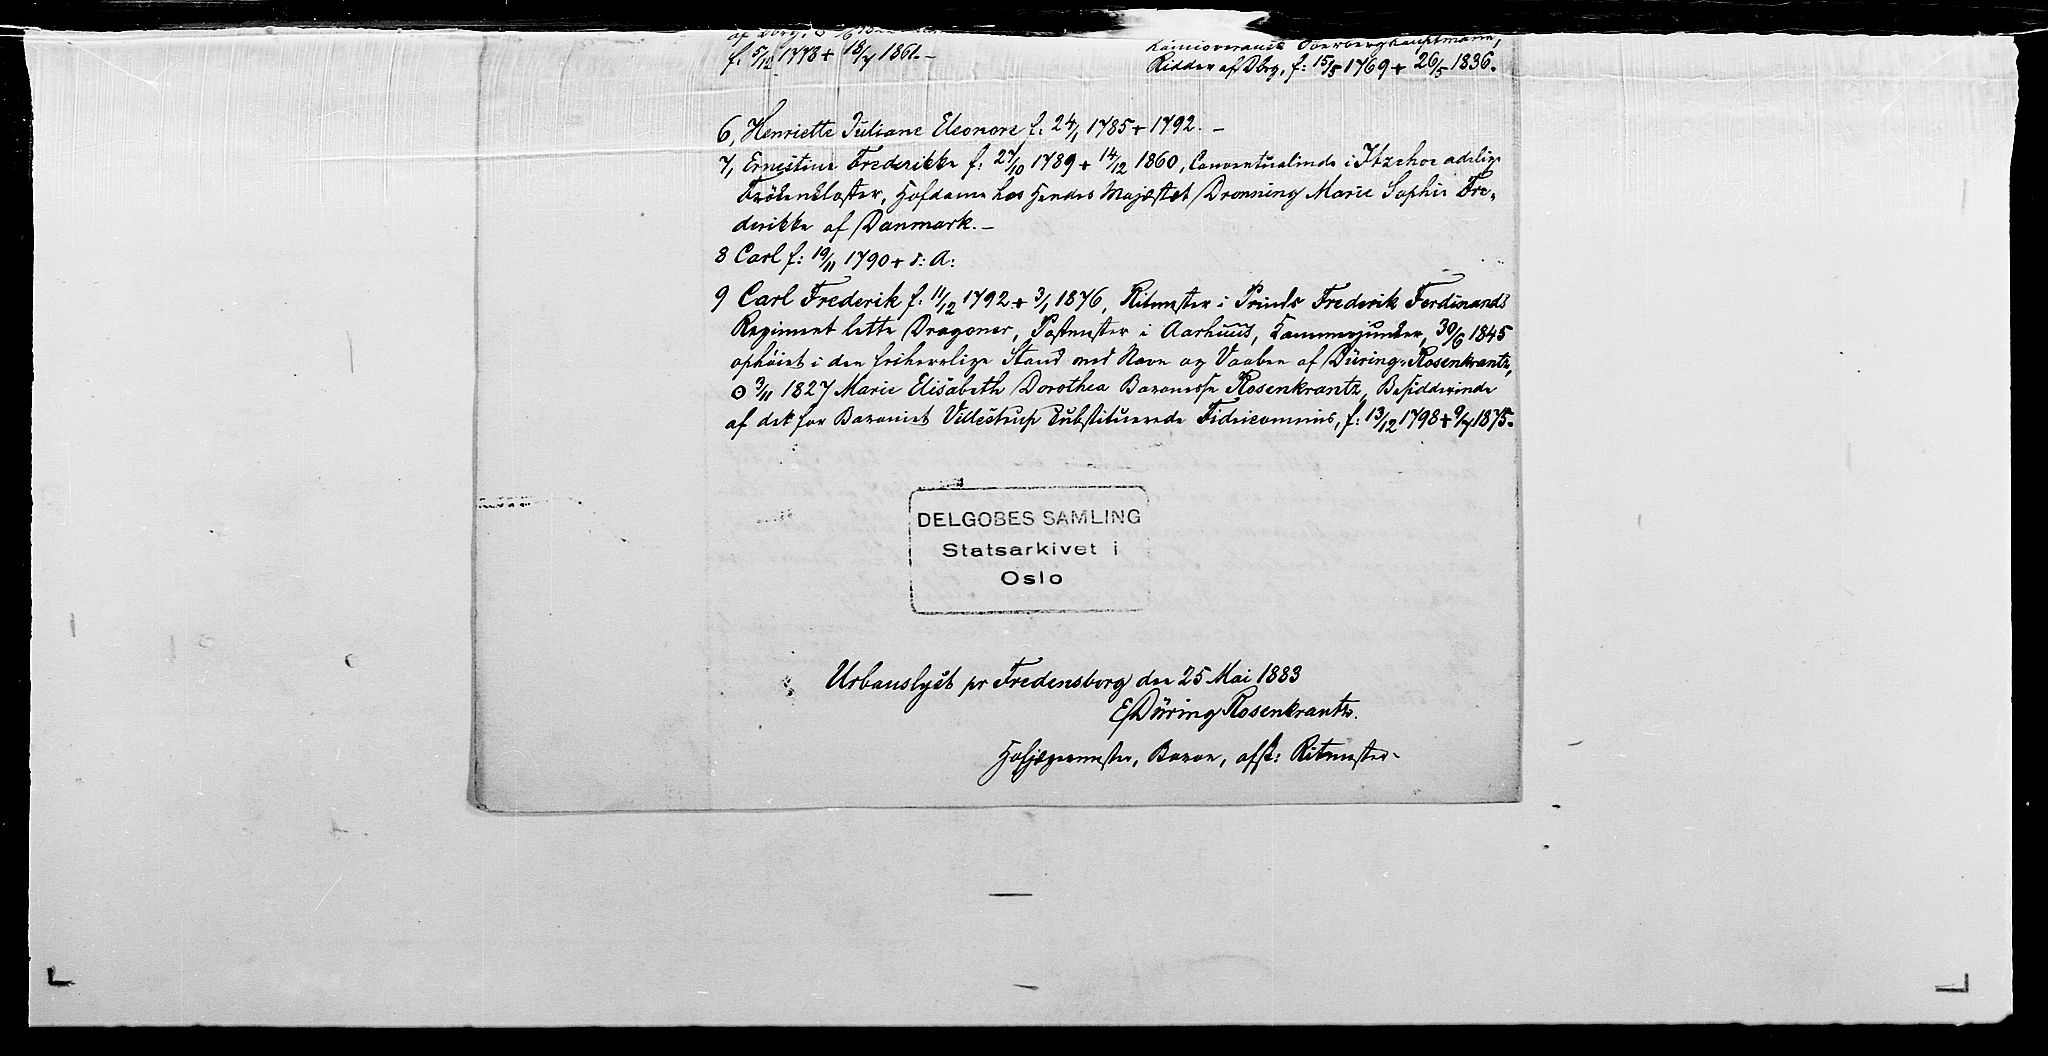 f. 5/12 1773 + 18/7 1861. –
hannoveransk Overberghauptmann,
Ridder af Dbg, f: 15/5 1769 + 26/5 1836.
6, Henriette Juliane Eleonore f: 24/1 1785 + 1792. –
7, Ernestine Frederikke f. 27/10 1789 + 14/12 1860, Conventualinde i Itzehoe adelige
Frökenkloster, Hofdame hos Hendes Majestæt Dronning Marie Sophie Fre-
derikke af Danmark. –
8 Carl f: 19/11 1790 + s: A:
9 Carl Frederik f. 11/12 1792 + 3/1 1876, Ritmester i Prinds Frederik Ferdinands
Regiment lette Dragoner, Postmester i Aarhuus, Kammerjunker, 30/6 1845
ophöiet i den friherrlige Stand med Navn og Vaaben af Düring-Rosenkrantz,
o 3/11 1827 Marie Elisabeth Dorothea Baronesse Rosenkrantz, Besidderinde
af det for Baroniet Villestrup substituerede Fideicommis, f: 13/12 1798 + 9/7 1875.
DELGOBES SAMLING
Statsarkivet i
Oslo
Urbanslyst pr Fredensborg den 25 Mai 1883
E Düring Rosenkrantz.
Hofjægermester, Baron, afsk: Ritmester